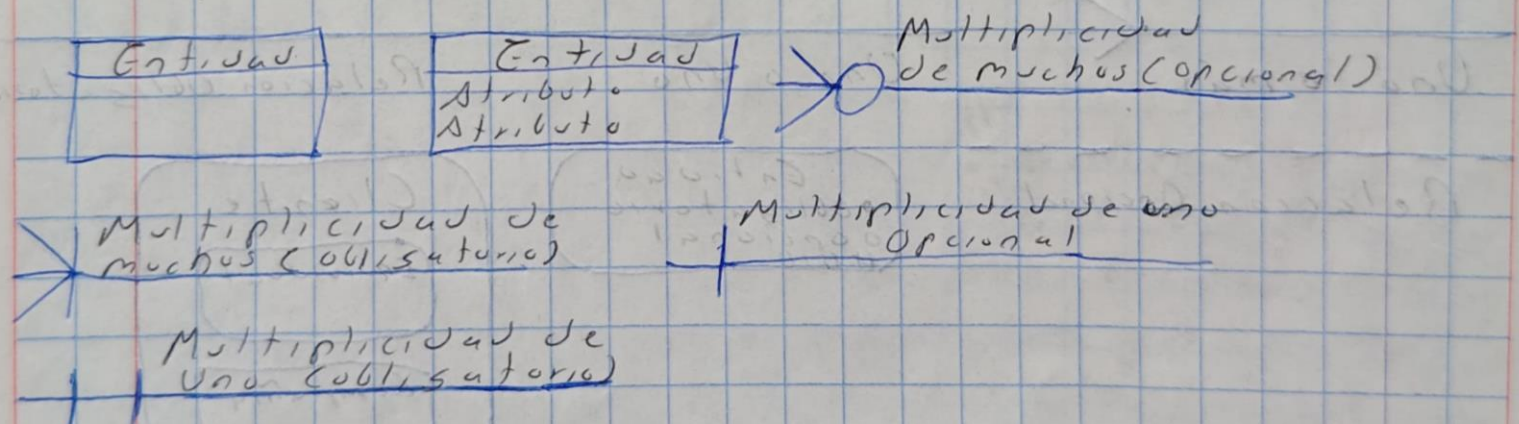 Entidad
Entidad
Atributo
Atributo
Multiplicidad
de muchos (opcional)
Multiplicidad de
muchos (obligatorio)
Multiplicidad de uno
Opcional
Multiplicidad de
uno (obligatorio)